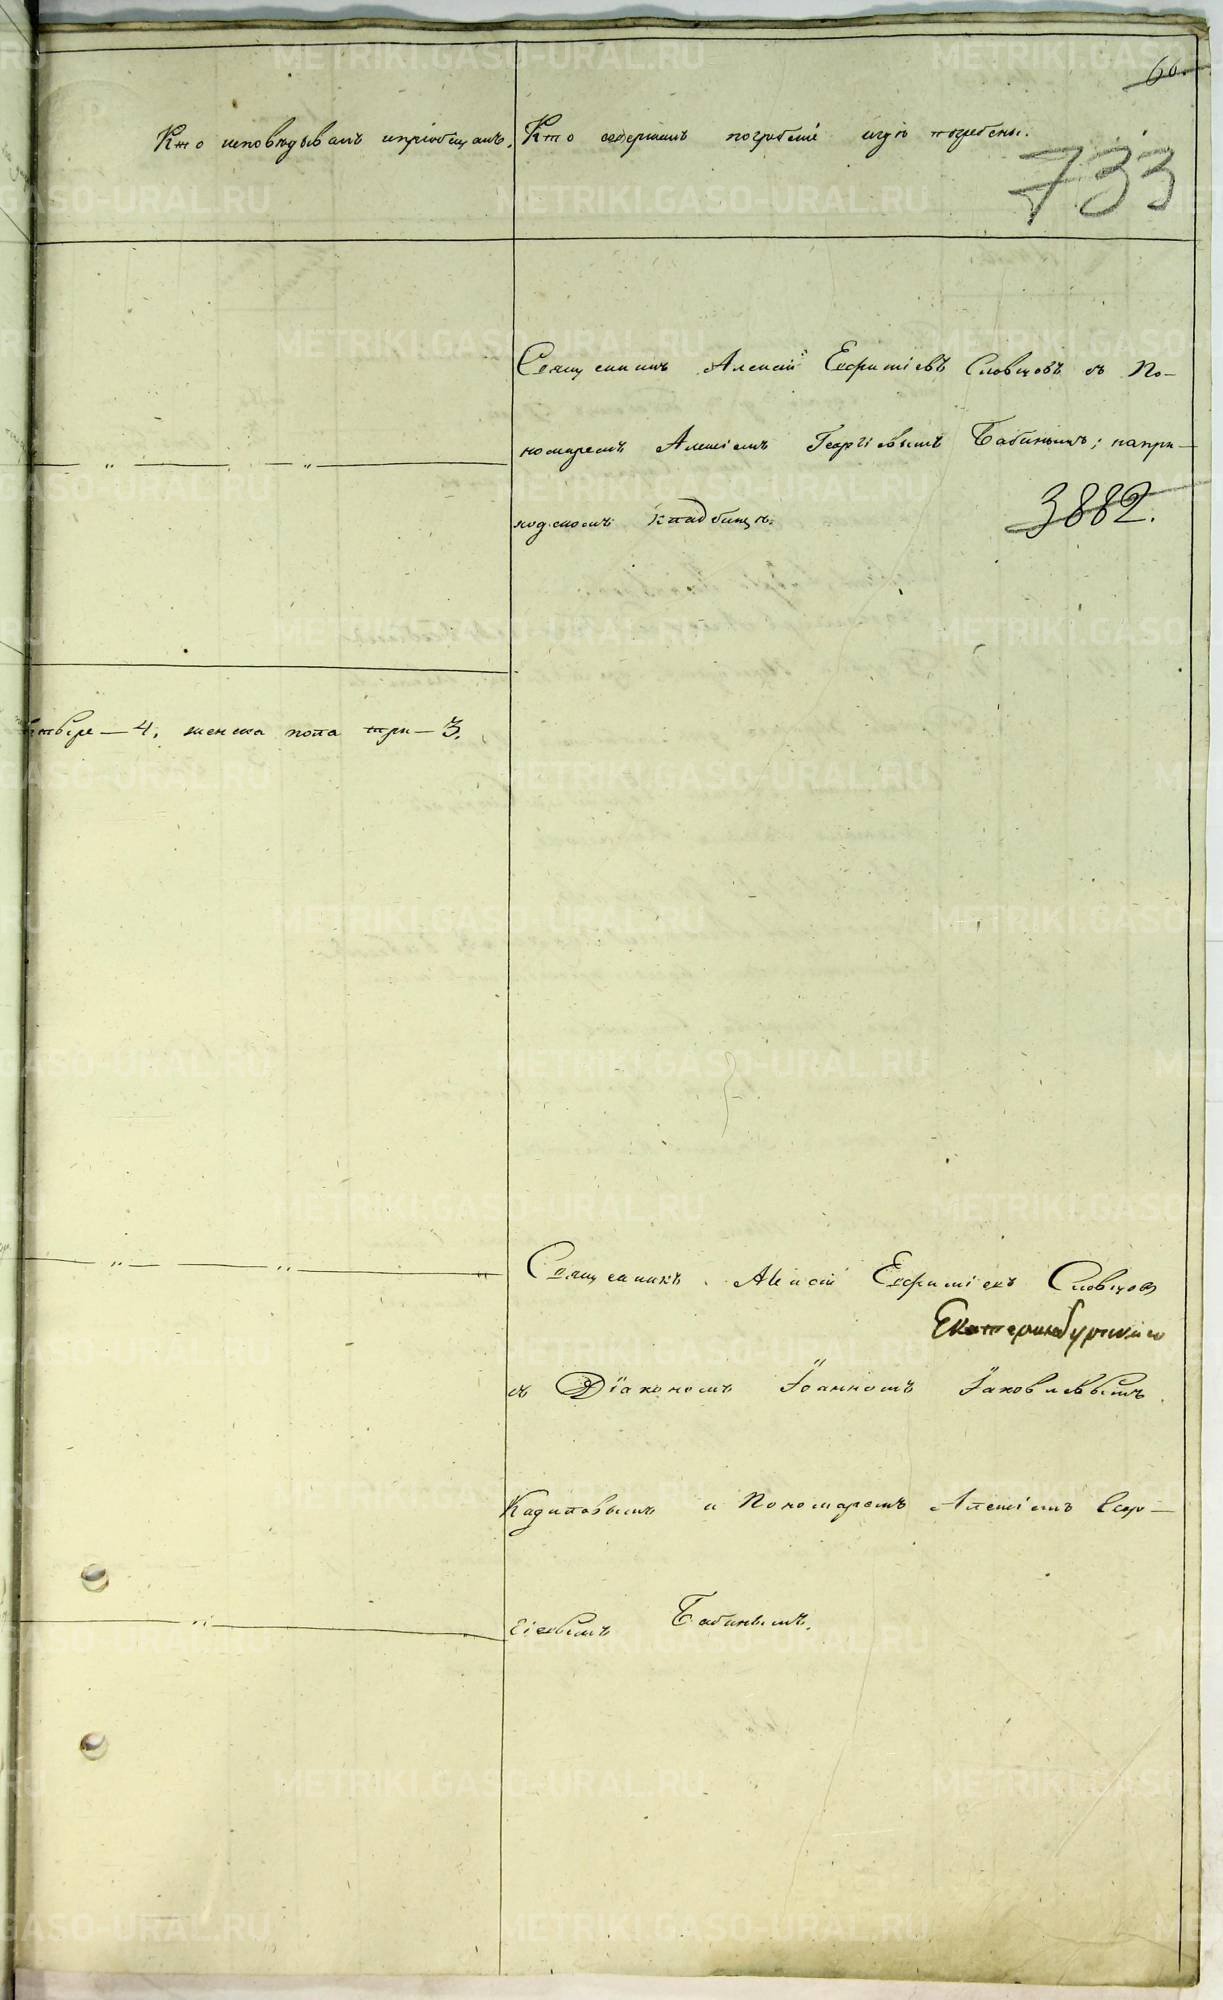 60.
Кто исповѣдывалъ и пріобщалъ.
Кто совершалъ погребеніе и гдѣ погребены.
733
Священникъ Алексій Евфиміевъ Словцовъ съ По-
номаремъ Алексіемъ Георгіевымъ Бабинымъ; на при-
ходскомъ кладбищѣ.
3882.
4, женска пола три — 3.
Священникъ Алексій Евфиміевъ Словцовъ
Екатеринбургскаго
съ Діакономъ Іоанномъ Іаковлевымъ
Кадиловымъ и Пономаремъ Алексіемъ Геор-
гіевымъ Бабинымъ.
METRIKI.GASO-URAL.RU